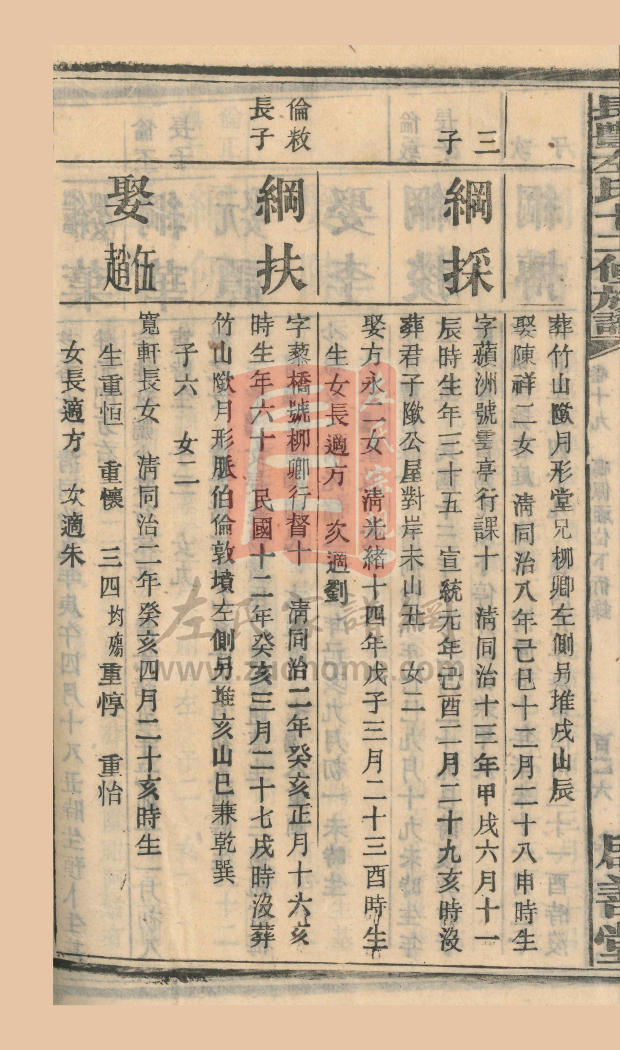 葬竹山歞月形堂兄柳卿左側另堆戌山辰
娶陳祥二女 淸同治八年己巳十二月二十八申時生
三子
綱採
字蘋洲號雲亭行課十 淸同治十三年甲戌六月十一
辰時生年三十五 宣統元年己酉二月二十九亥時沒
葬君子歞公屋對岸未山丑 女二
娶方永二女 淸光緒十四年戊子三月二十三酉時生
生女長適方 次適劉
倫敉長子
綱扶
字藜橋號柳卿行督十 淸同治二年癸亥正月十六亥
時生年六十 民國十二年癸亥三月二十七戌時沒葬
竹山歞月形脈伯倫敦墳左側另堆亥山巳兼乾巽
子六 女二
娶趙伍
寬軒長女 淸同治二年癸亥四月二十亥時生
生重恒 重懷 三四均殤 重惇 重怡
女長適方 次適朱
左氏家譜網
www.zuchome.com